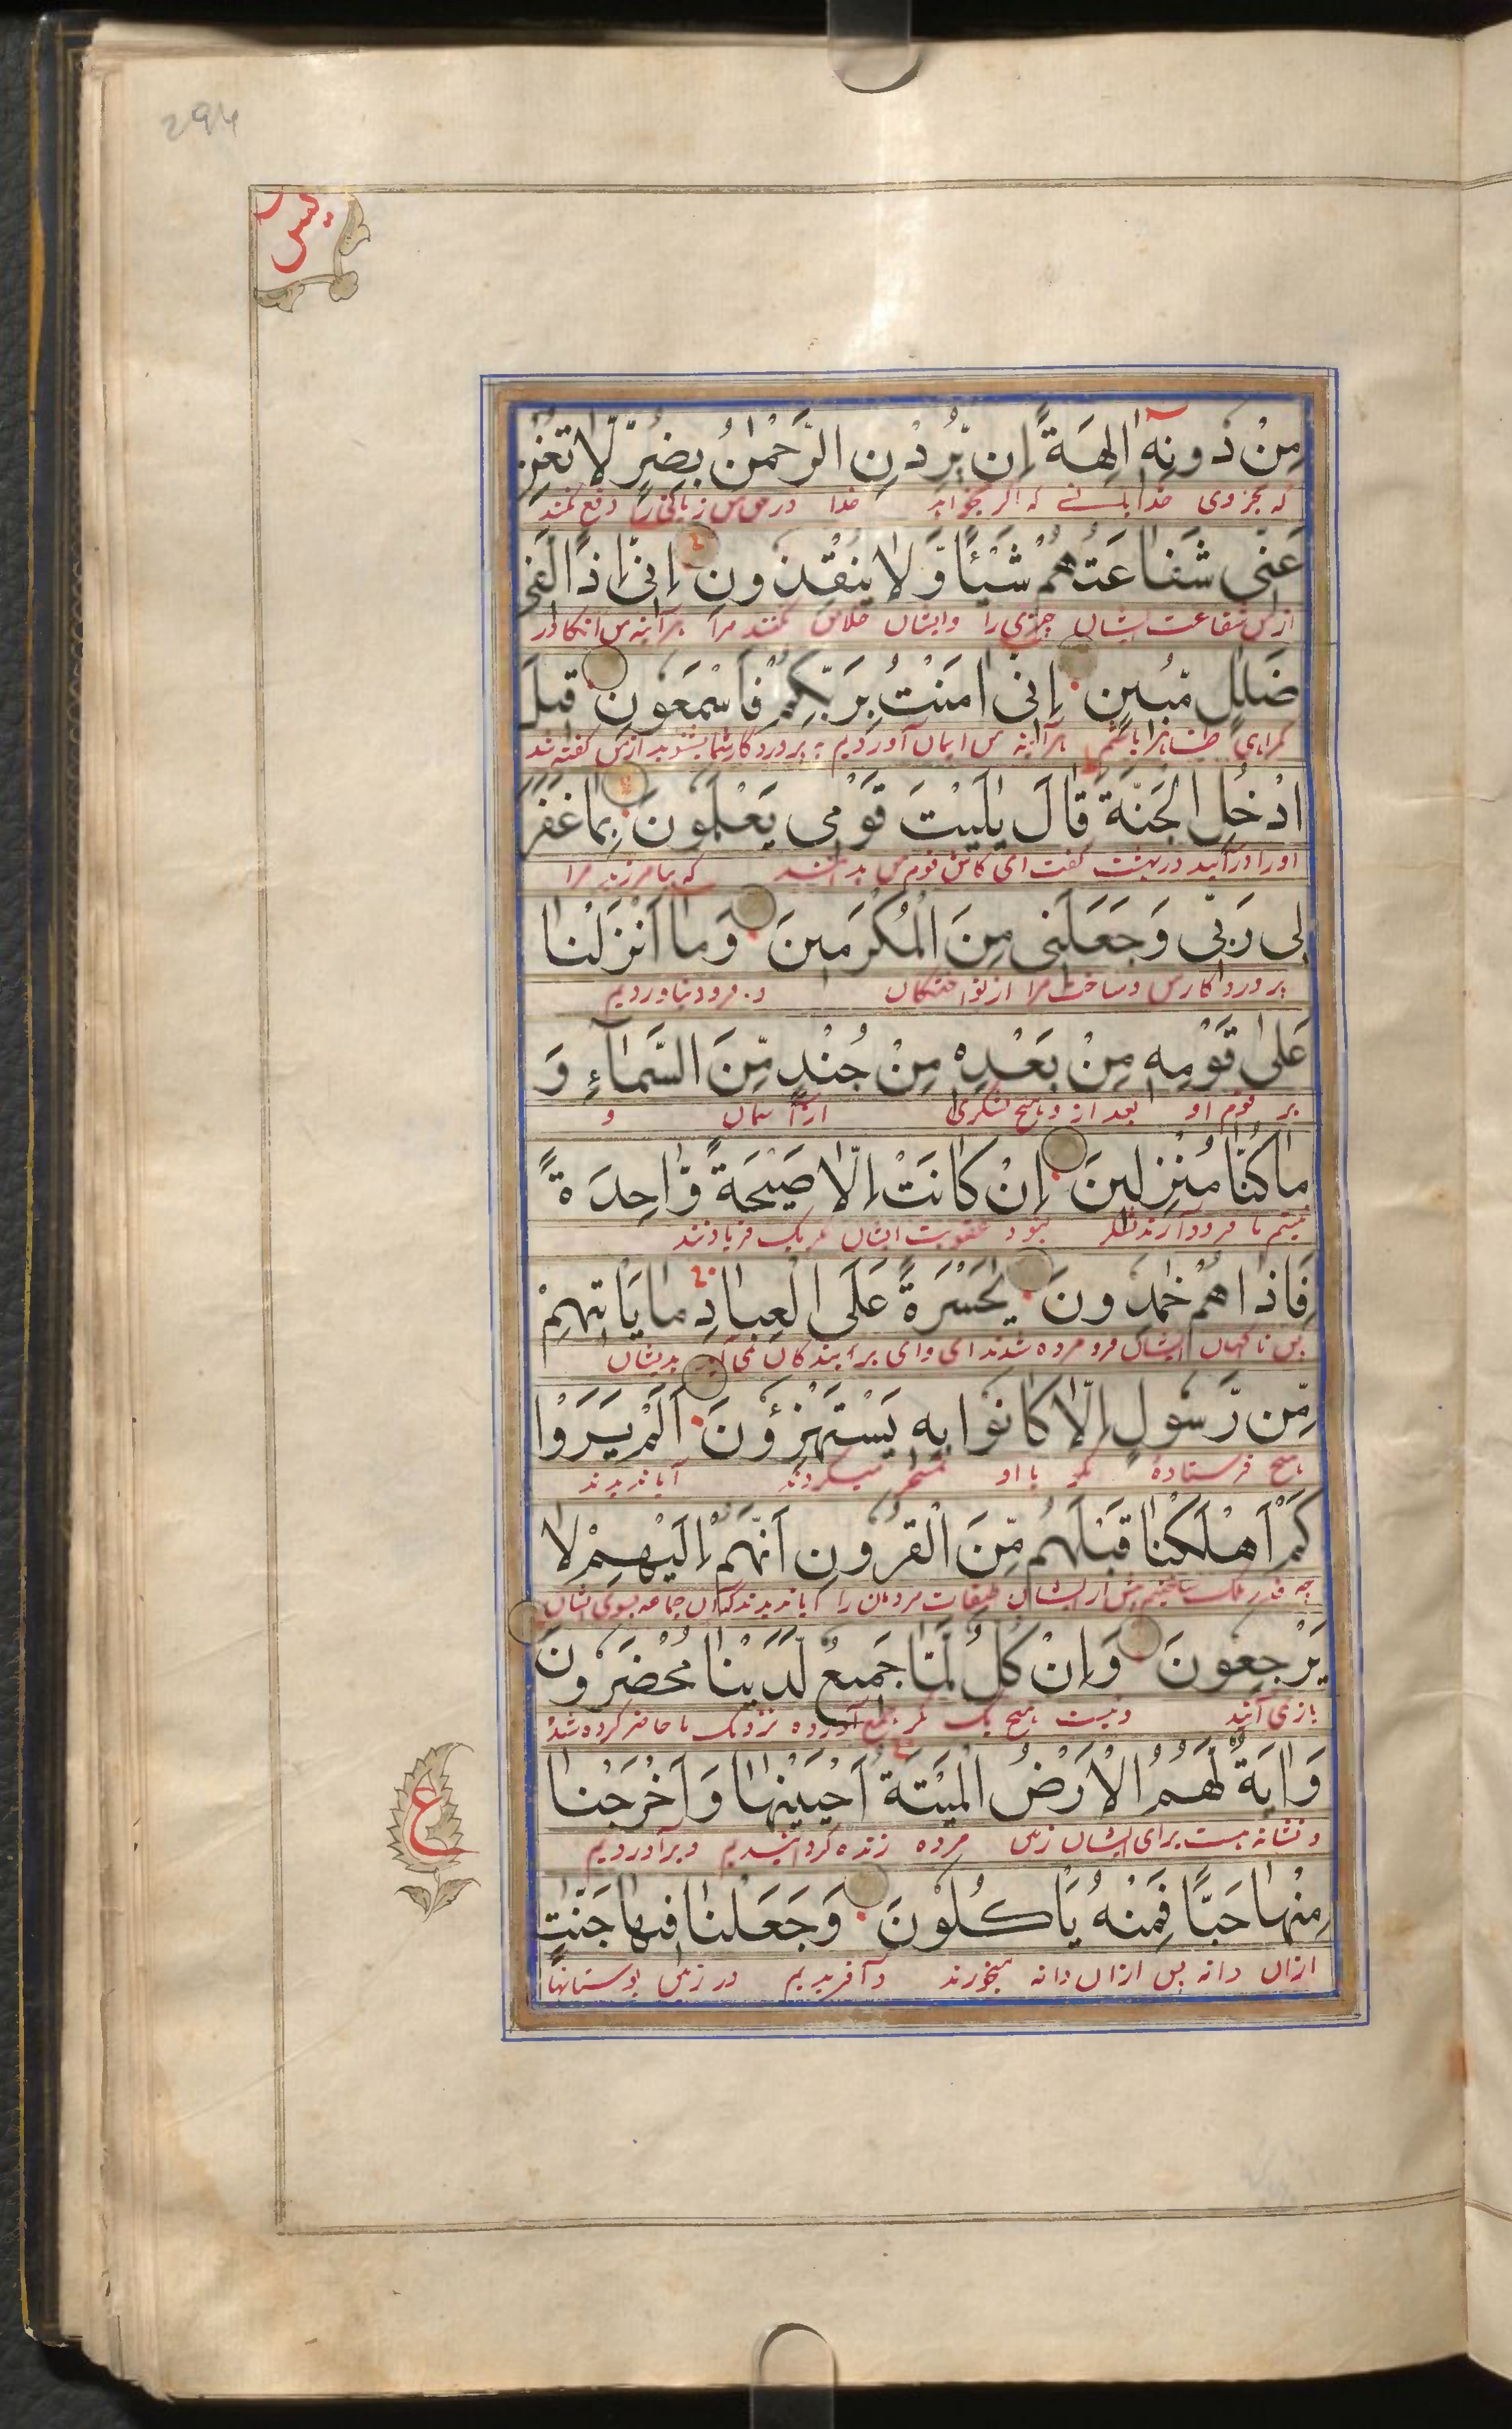 294
يس
مِنْ دُونِهٖٓ اٰلِهَةً اِنْ يُّرِدْنِ الرَّحْمٰنُ بِضُرٍّ لَّا تُغْنِ
که بجز وی خدایانے که اگر بخواهد خدا در حق من زیانی را دفع نکنند
عَنِّى شَفَاعَتُهُمْ شَيْـًٔا وَّلَا يُنْقِذُونِ اِنِّىٓ اِذًا لَّفِى
از من شفاعت ایشان چیزی را و ایشان خلاص نکنند مرا هرآینه من آنگاه در
ضَلٰلٍ مُّبِينٍ اِنِّىٓ اٰمَنْتُ بِرَبِّكُمْ فَاسْمَعُونِ قِيلَ
گمراهی ظاهر باشم هرآینه من ایمان آوردیم به پروردگار شما بشنوید از من گفته شد
ادْخُلِ الْجَنَّةَ قَالَ يٰلَيْتَ قَوْمِى يَعْلَمُونَ بِمَا غَفَرَ
او را درآیید در بهشت گفت ای کاش قوم من بدانند که بیامرزید مرا
لِى رَبِّى وَجَعَلَنِى مِنَ الْمُكْرَمِينَ وَمَآ اَنْزَلْنَا
پروردگار من و ساخت مرا از نواختگان و فرود نیاوردیم
عَلٰى قَوْمِهٖ مِنْ بَعْدِهٖ مِنْ جُنْدٍ مِّنَ السَّمَآءِ وَ
بر قوم او بعد از وی هیچ لشکری از آسمان و
مَا كُنَّا مُنْزِلِينَ اِنْ كَانَتْ اِلَّا صَيْحَةً وَّاحِدَةً
نیستیم ما فرود آرنده لشکر نبود عقوبت ایشان مگر یک فریاد تند
فَاِذَا هُمْ خٰمِدُونَ يٰحَسْرَةً عَلَى الْعِبَادِ مَا يَاْتِيهِمْ
پس ناگهان ایشان فرو مرده شدند ای وای بر بندگان نمی آید بدیشان
مِّنْ رَّسُولٍ اِلَّا كَانُوا بِهٖ يَسْتَهْزِءُونَ اَلَمْ يَرَوْا
هیچ فرستادهٔ مگر با او تمسخر میکردند آیا ندیدند
كَمْ اَهْلَكْنَا قَبْلَهُمْ مِّنَ الْقُرُونِ اَنَّهُمْ اِلَيْهِمْ لَا
چه قدر هلک ساختیم پیش از ایشان طبقات مردمان را آیا ندیدند که آن جماعه بسوی ایشان
يَرْجِعُونَ وَاِنْ كُلٌّ لَّمَّا جَمِيعٌ لَّدَيْنَا مُحْضَرُونَ
بازنمی آیند و نیست هیچ یک مگر جمع آورده نزدیک ما حاضر کرده شد
وَاٰيَةٌ لَّهُمُ الْاَرْضُ الْمَيْتَةُ اَحْيَيْنٰهَا وَاَخْرَجْنَا
و نشانه هست برای ایشان زمین مرده زنده گردانیدیم و برآوردیم
مِنْهَا حَبًّا فَمِنْهُ يَاْكُلُونَ وَجَعَلْنَا فِيهَا جَنّٰتٍ
ازان دانه پس ازان دانه میخورند و آفریدیم در زمین بوستانها
ع